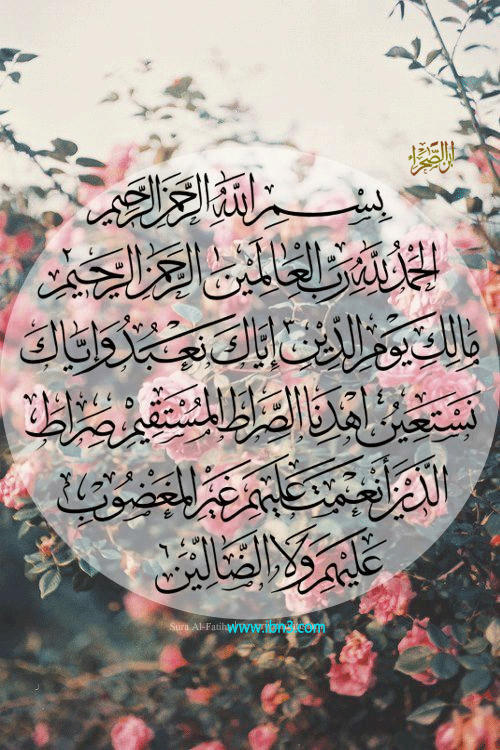 ابن الصحراء
بِسْمِ اللَّهِ الرَّحْمَنِ الرَّحِيمِ
الْحَمْدُ لِلَّهِ رَبِّ الْعَالَمِينَ الرَّحْمَنِ الرَّحِيمِ
مَالِكِ يَوْمِ الدِّينِ إِيَّاكَ نَعْبُدُ وَإِيَّاكَ
نَسْتَعِينُ اهْدِنَا الصِّرَاطَ الْمُسْتَقِيمَ صِرَاطَ
الَّذِينَ أَنْعَمْتَ عَلَيْهِمْ غَيْرِ الْمَغْضُوبِ
عَلَيْهِمْ وَلَا الضَّالِّينَ
Sura Al-Fatiha
www.ibn3.com